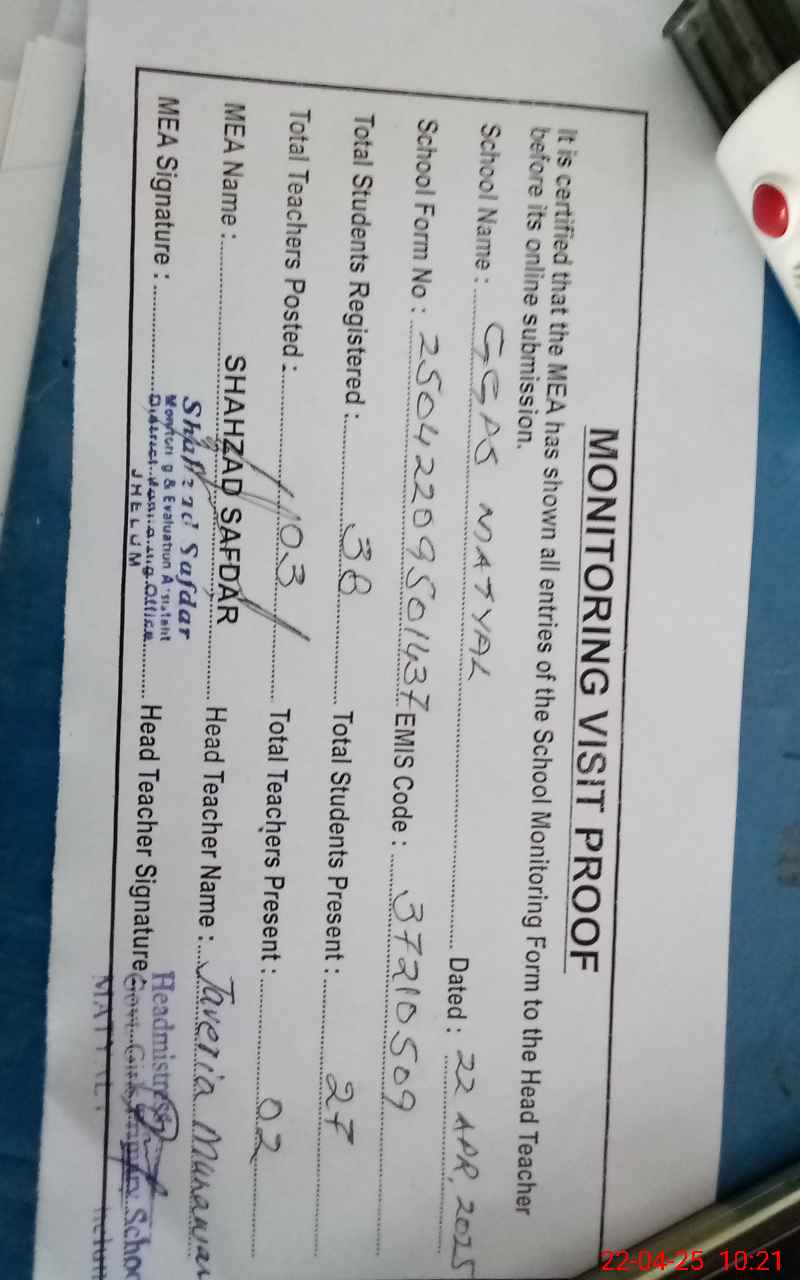 MONITORING VISIT PROOF
It is certified that the MEA has shown all entries of the School Monitoring Form to the Head Teacher
before its online submission.
School Name : GGPS MATYAL Dated : 22 APR, 2025
School Form No : 25042209501437 EMIS Code : 37210509
Total Students Registered : 38 Total Students Present : 27
Total Teachers Posted : 03 Total Teachers Present : 02
MEA Name : SHAHZAD SAFDAR Head Teacher Name : Javeria
MEA Signature : Head Teacher Signature
Shahzad Safdar
Monitoring & Evaluation Assistant
District Monitoring Office
JHELUM
Headmistress
Govt. Girls Primary School
MATYAL
22-04-25 10:21